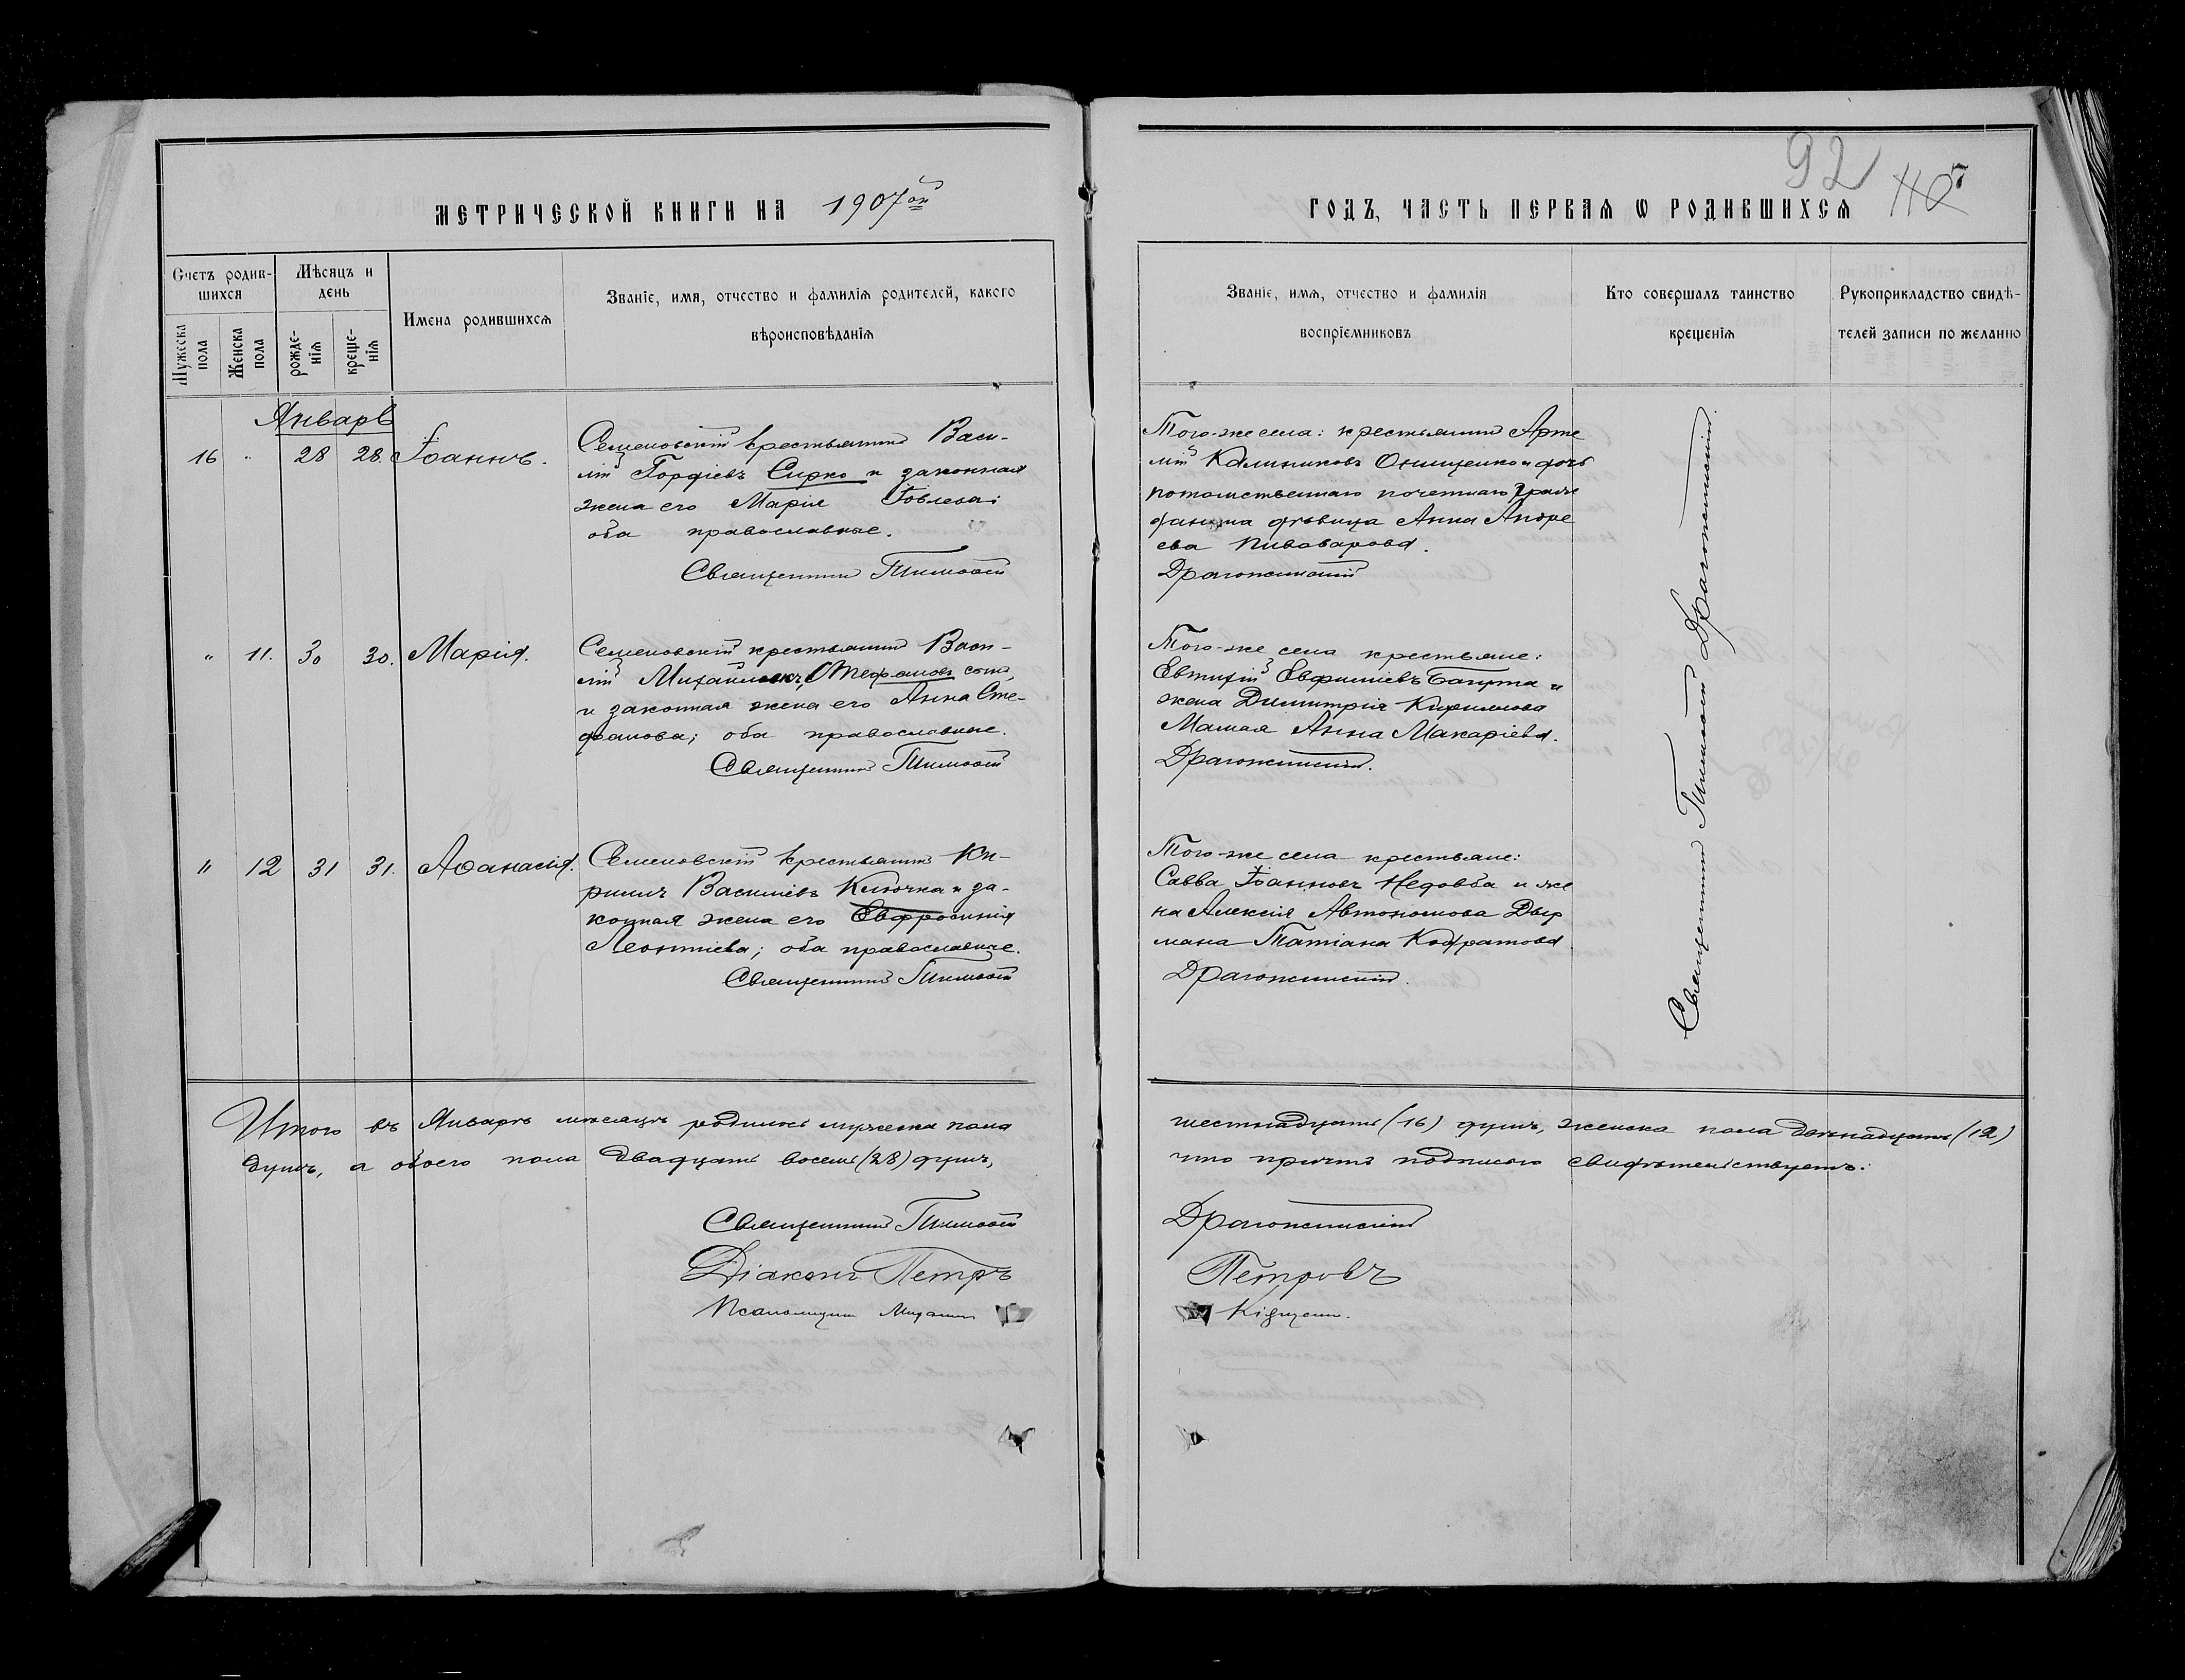 МЕТРИЧЕСКОЙ КНИГИ НА 1907ой
Счетъ родив-
шихся
Мѣсяцъ и
день
Мужеска
пола
Женска
пола
рожде-
нія
креще-
нія
Имена родившихся
Званіе, имя, отчество и фамилія родителей, какого
вѣроисповѣданія
Январь
16 " 28 28. Іоаннъ.
Семеновскій крестьянинъ Васи-
лій Гордіевъ Сирко и законная
жена его Марія Іовлева;
оба православные.
Священникъ Тимоѳей
" 11. 30 30. Марія.
Семеновскій крестьянинъ Васи-
лій Михайловъ Стефановъ сынъ,
и законная жена его Анна Сте-
фанова; оба православные.
Священникъ Тимоѳей
" 12 31 31. Аѳанасія.
Семеновскій крестьянинъ Ки-
риллъ Василіевъ Клочка и за-
конная жена его Евфросинія
Леонтіева; оба православные.
Священникъ Тимоѳей
Итого въ Январѣ мѣсяцѣ родилось мужеска пола
душъ, а обоего пола двадцать восемь (28) душъ,
Священникъ Тимоѳей
Діаконъ Петръ
Псаломщикъ Михаилъ
92
110
7
ГОДЪ, ЧАСТЬ ПЕРВАЯ Ѡ РОДИВШИХСЯ
Званіе, имя, отчество и фамилія
воспріемниковъ
Кто совершалъ таинство
крещенія
Рукоприкладство свидѣ-
телей записи по желанію
Того-же села: крестьянинъ Арте
мій Калиниковъ Онищенко и дочь
потомственнаго почетнаго граж
данина дѣвица Анна Андре
ева Пивоварова.
Драгожинскій
Того-же села крестьяне:
Евтихій Евфиміевъ и
жена Димитрія Кириллова
Мамая Анна Макаріева.
Драгожинскій.
Того-же села крестьяне:
Савва Іоанновъ Недовба и же
на Алексія Автономова
Татіана Кодратова
Драгожинскій.
Священникъ Тимоѳей Драгожинскій.
шестнадцать (16) душъ, женска пола двѣнадцать (12)
что причтъ подписью свидѣтельствуетъ:
Драгожинскій
Петровъ